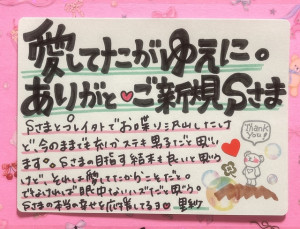 愛してたがゆえに。
ありがと♥ご新規Sさま
Sさまとプレイタイムでお喋り沢山したいけ
ど今のままでも充分ステキ男子だと思い
ます。Sさまの目指す結末も良いと思う
けど、それも愛してたからこそだと。
でなければ眼中ないハズだと思う。
Sさまの本当の幸せを応援してるヨ♥ 里紗
Thank you